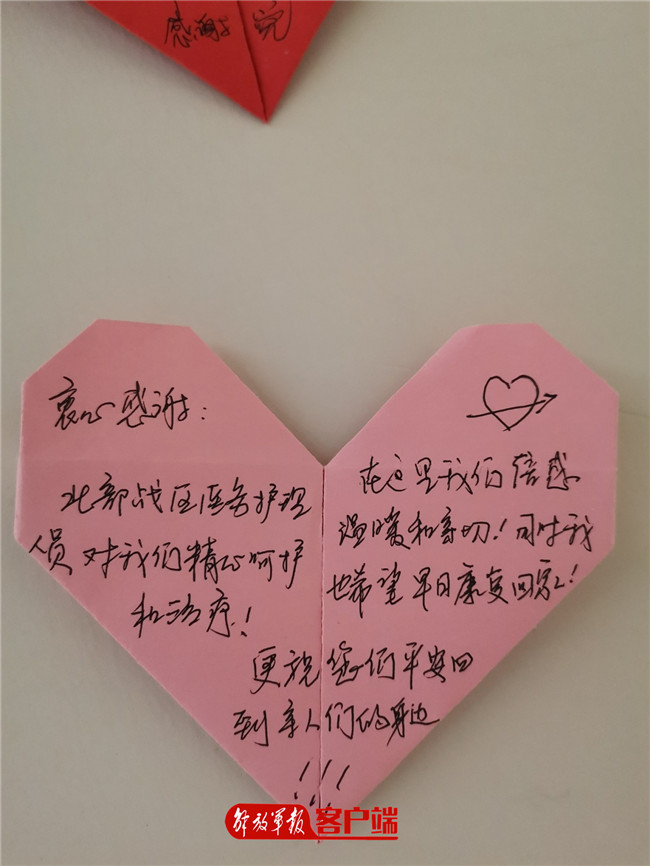 感谢
衷心感谢：
北部战区医务护理
人员对我们精心呵护
和治疗！
在这里我们倍感
温暖和亲切！同时我
也希望早日康复回家！
更祝您们平安回
到亲人们的身边
!!!
解放军报 客户端